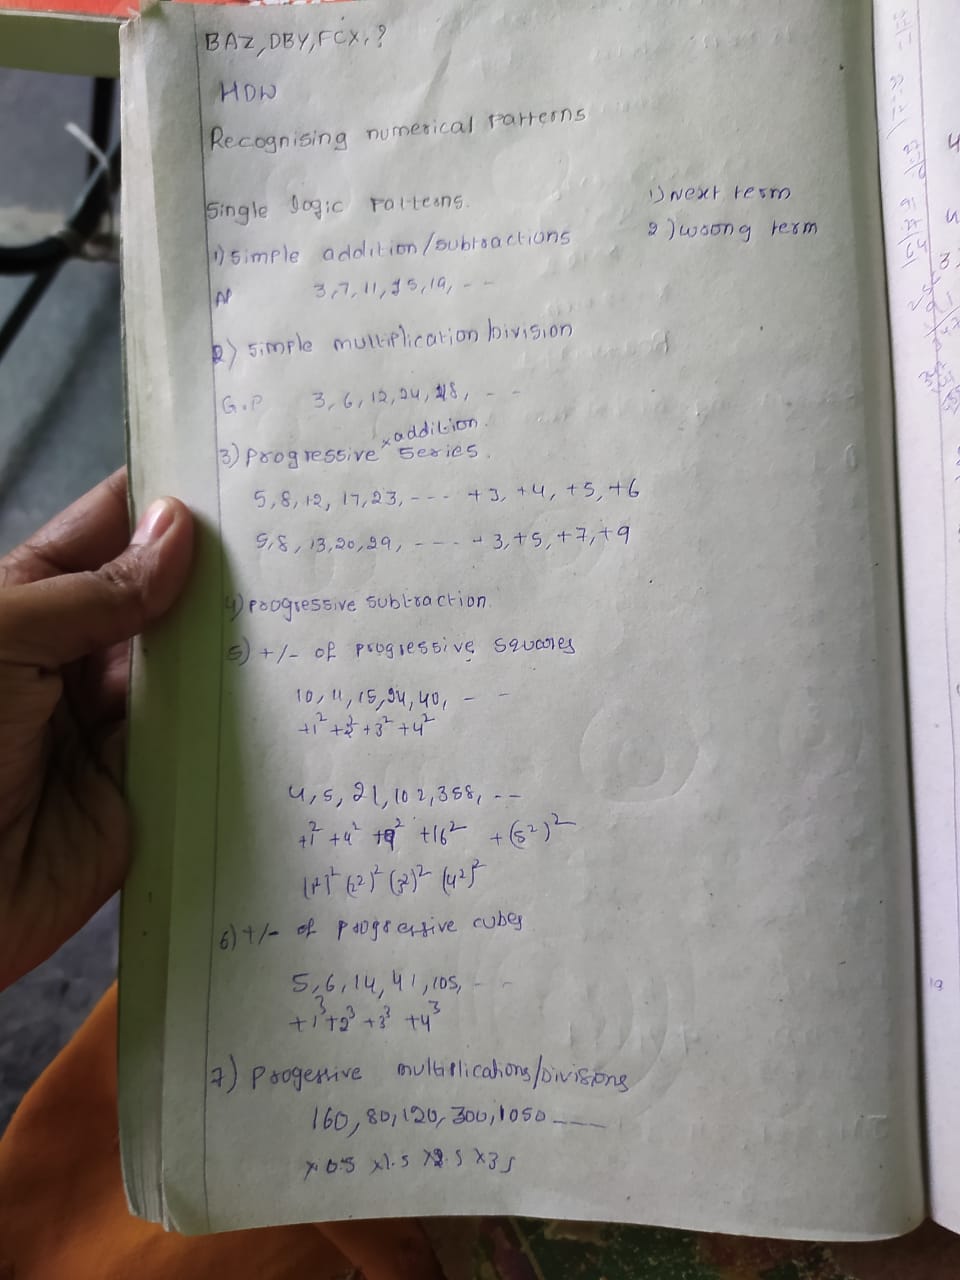 BAZ, DBY, FCX, ?
HDW
Recognising numerical Patterns
Single logic Patterns.
1) Next term
1) simple addition/subtractions
2) wrong term
AP 3, 7, 11, 15, 19, - -
2) simple multiplication/Division
G.P 3, 6, 12, 24, 48, - -
x addition.
3) progressive series.
5, 8, 12, 17, 23, - - - +3, +4, +5, +6
5, 8, 13, 20, 29, - - - - +3, +5, +7, +9
4) progressive subtraction.
5) +/- of progressive squares
10, 11, 15, 24, 40, - -
+1² +2² +3² +4²
4, 5, 21, 102, 358, - -
+1² +4² +9² +16² + (5²)²
(1²)² (2²)² (3²)² (4²)²
6) +/- of progressive cubes
5, 6, 14, 41, 105, - -
+1³ +2³ +3³ +4³
7) Progessive multiplications/Divisions
160, 80, 120, 300, 1050 - - -
x0.5 x1.5 x2.5 x35